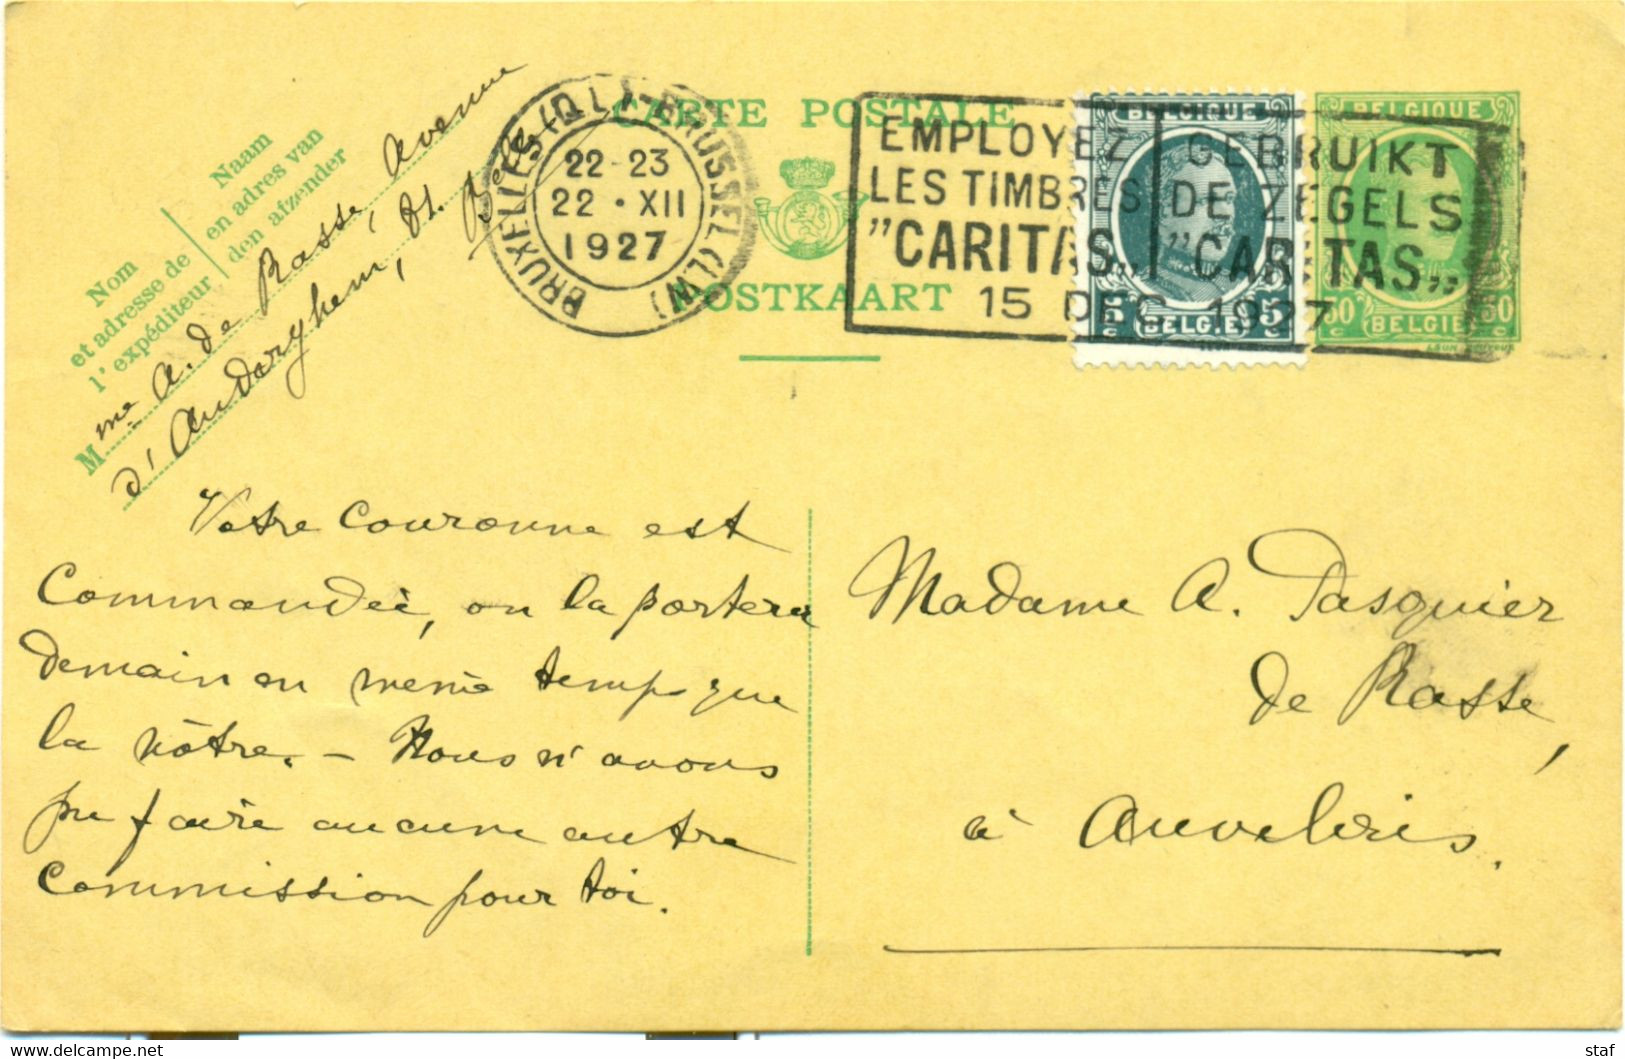 CARTE POSTALE
POSTKAART
BRUXELLES (Q.L.) - BRUSSEL (L.W)
22-23
22 • XII
1927
EMPLOYEZ
LES TIMBRES
"CARITAS„
GEBRUIKT
DE ZEGELS
"CARITAS„
15 DEC. 1927
BELGIQUE
5c BELGIË 5c
BELGIQUE
30c BELGIË 30c
Nom
et adresse de
l'expéditeur
Naam
en adres van
den afzender
Mme A. de Rasse, Avenue
d'Auderghem,
Votre couronne est
commandée, on la portera
demain en même temps que
la nôtre. – Nous n'avons
pu faire aucune autre
commission pour toi.
Madame A. Pasquier
de Rasse,
à Auvelais.
delcampe.net
staf